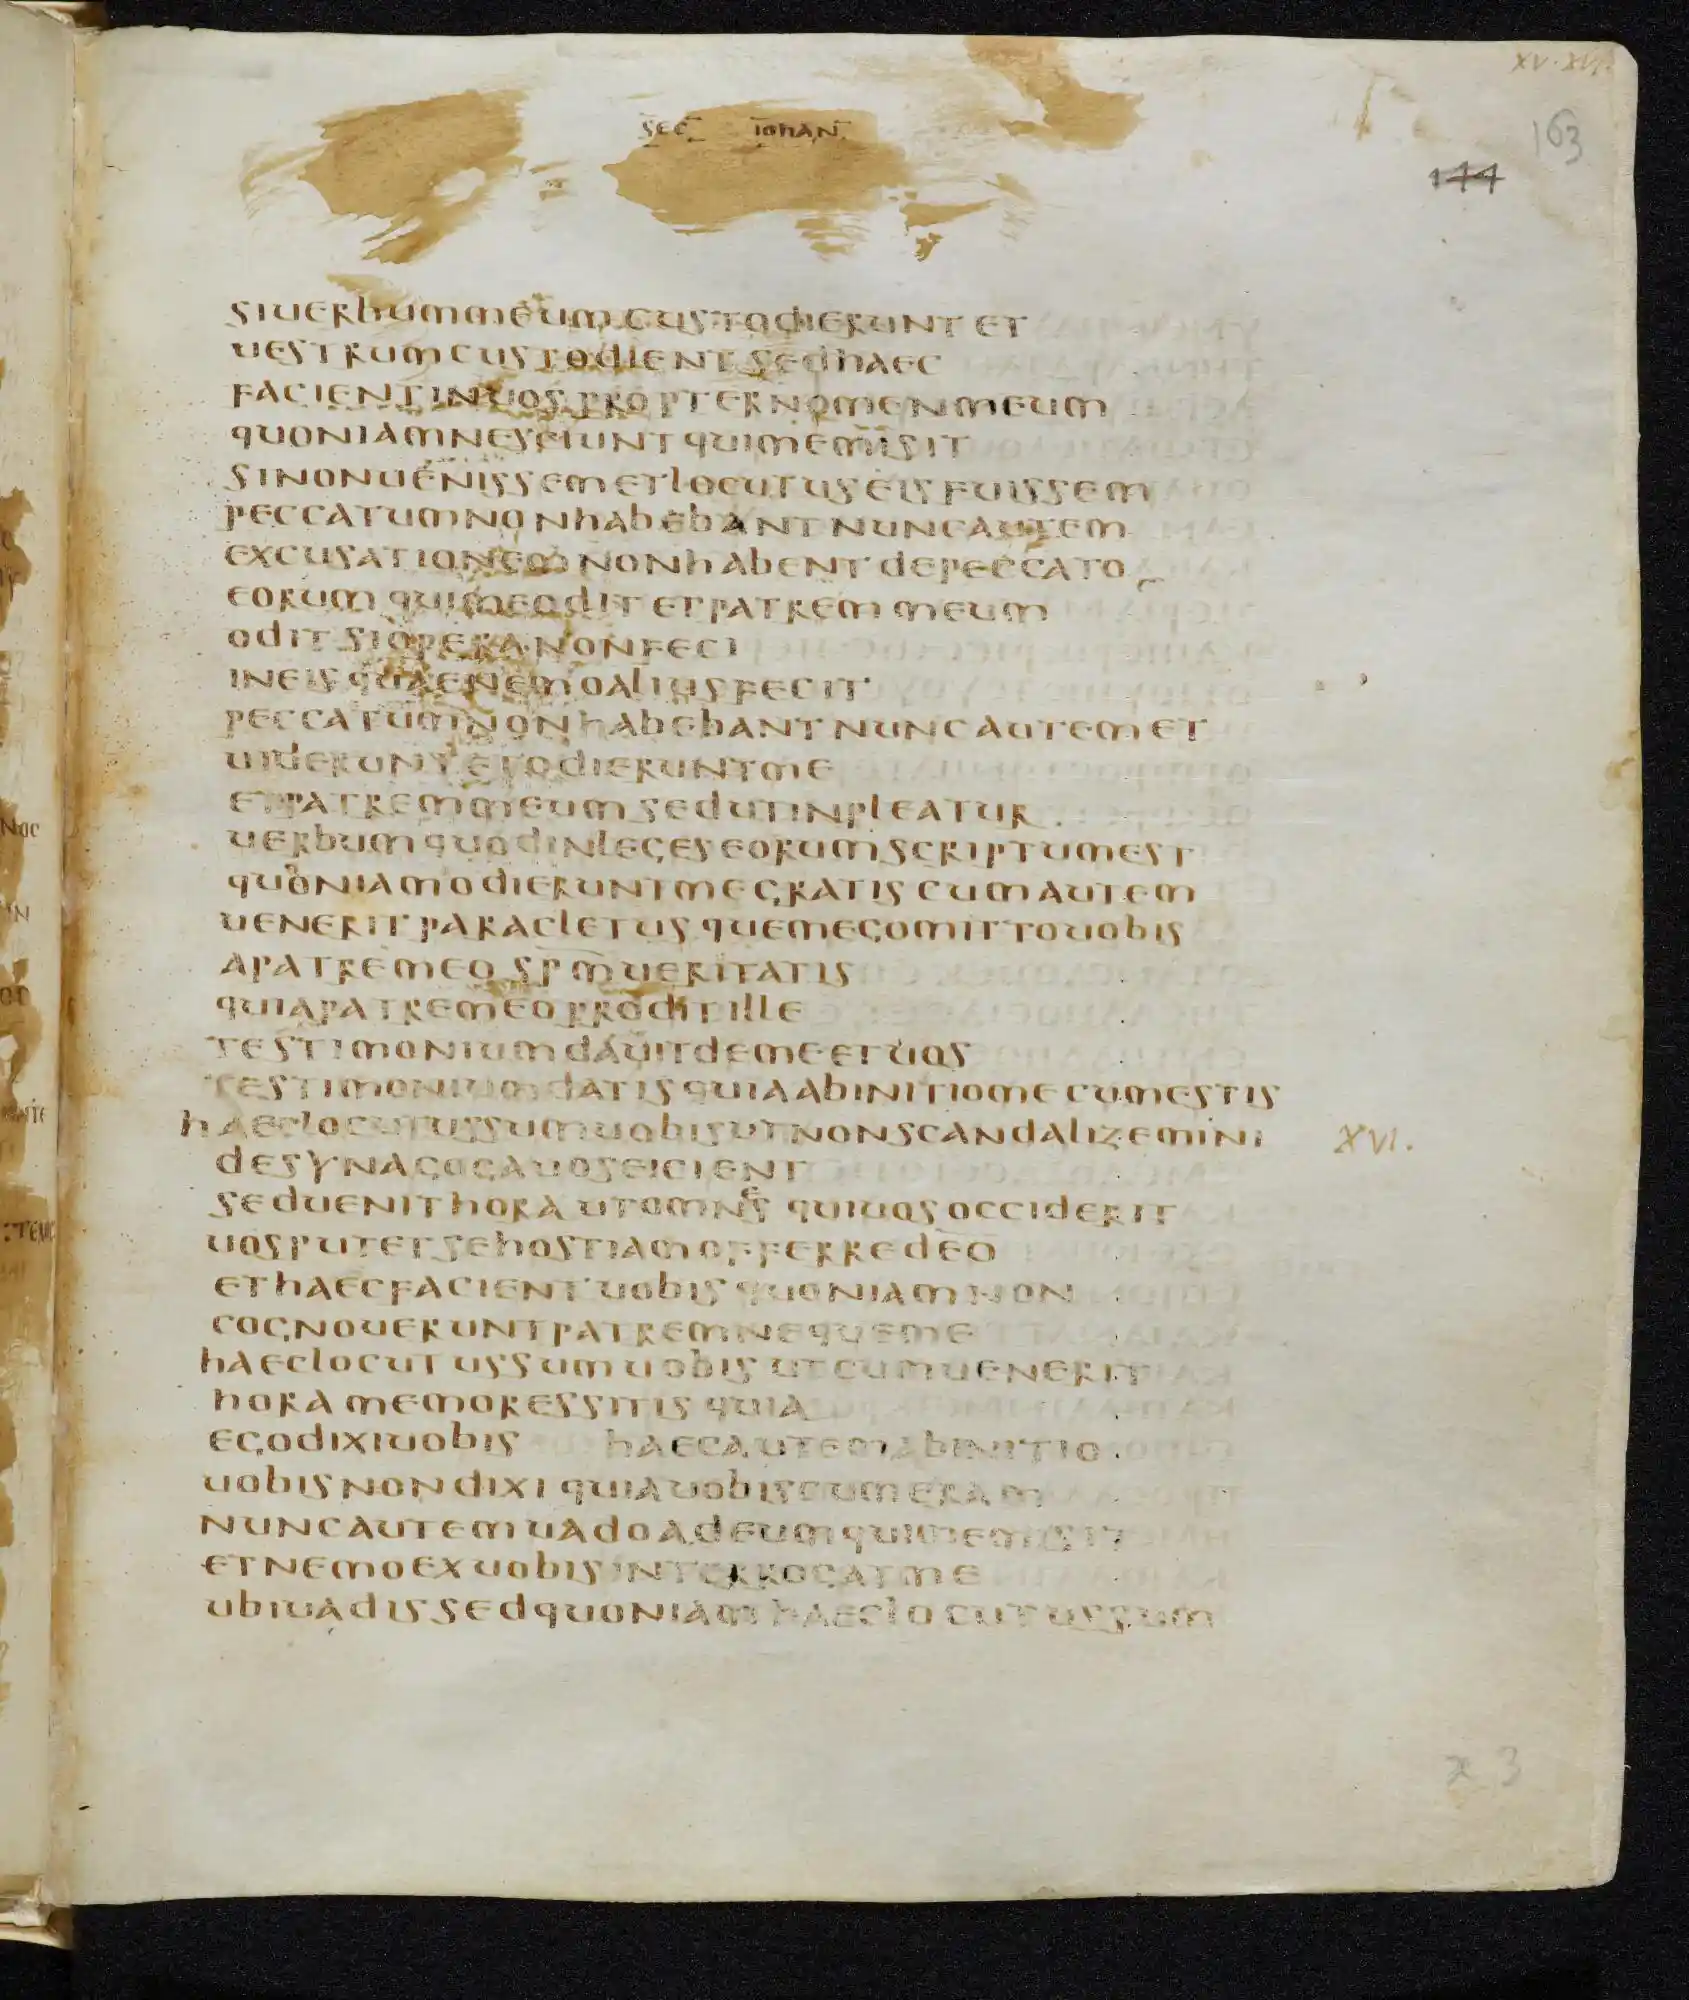 XV·XVI.
163
144
SEC IOHAN
SIUERBUMMEUMCUSTODIERUNT ET
UESTRUMCUSTODIENT SEDHAEC
FACIENTINUOS PROPTERNOMENMEUM
QUONIAMNESCIUNT QUIMEMISIT
SINONUENISSEMETLOCUTUSEIS FUISSEM
PECCATUMNONHABEBANT NUNCAUTEM
EXCUSATIONEM NONHABENT DEPECCATO
EORUM QUIMEODIT ETPATREM MEUM
ODIT SIOPERA NONFECI
INEIS QUAENEMOALIUSFECIT
PECCATUMNONHABEBANT NUNCAUTEMET
UIDERUNT ETODIERUNTME
ETPATREMMEUM SEDUTINPLEATUR
UERBUMQUODINLEGESEORUMSCRIPTUMEST
QUONIAMODIERUNTMEGRATIS CUMAUTEM
UENERIT PARACLETUS QUEMEGOMITTOUOBIS
APATREMEO SPMUERITATIS
QUIAPATREMEOPRODITILLE
TESTIMONIUMDAUITDEMEETUOS
TESTIMONIUMDATISQUIAABINITIOMECUMESTIS
HAECLOCUTUSSUMUOBISUTNONSCANDALIZEMINI XVI.
DESYNAGOGAUOSEICIENT
SEDUENITHORA UTOMNES QUIUOSOCCIDERIT
UOSPUTETSEHOSTIAMOFFERREDEO
ETHAECFACIENT UOBIS QUONIAMNON
COGNOUERUNTPATREMNEQUEME
HAECLOCUTUSSUMUOBIS UTCUMUENERIT
HORAMEMORESSITIS QUIA
EGODIXIUOBIS HAECAUTEMABINITIO
UOBISNONDIXI QUIAUOBISCUMERAM
NUNCAUTEMUADOADEUMQUIMEMISIT
ETNEMOEXUOBISINTERROGATME
UBIUADISSEDQUONIAMHAECLOCUTUSSUM